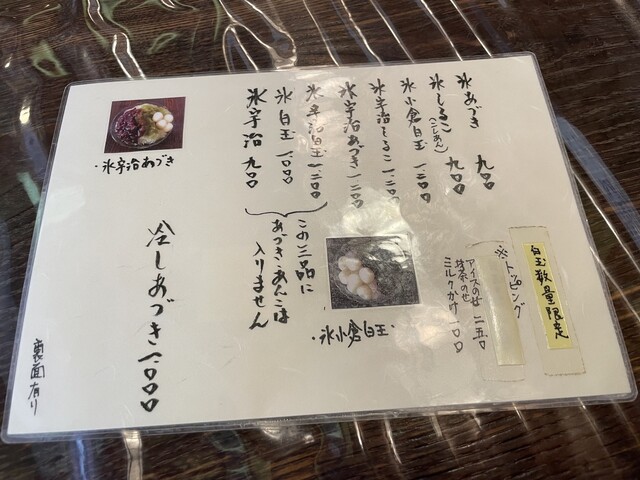 氷あづき 九〇〇
氷しるこ(こしあん) 九〇〇
氷小倉白玉 一二〇〇
氷宇治しるこ 一二〇〇
氷宇治あづき 一二〇〇
氷宇治白玉 一二〇〇
氷白玉 一〇〇〇
氷宇治 九〇〇
この三品に
あづきあんこは
入りません
白玉数量限定
※トッピング
アイスのせ 二五〇
抹茶のせ
ミルクかけ 一〇〇
・氷小倉白玉・
・氷宇治あづき
冷しあづき 一〇〇〇
裏面有り